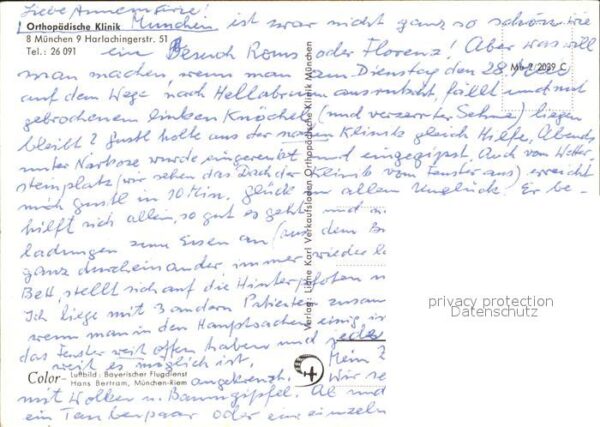 Liebe Annemarie!
Orthopädische Klinik
8 München 9 Harlachingerstr. 51
Tel.: 26 091
München ist zwar nicht ganz so schön wie
ein Besuch Roms oder Florenz! Aber was will
man machen, wenn man am Dienstag den 28.
Mü 2/2039 C
auf dem Wege nach Hellabrunn ausrutscht, fällt und mit
gebrochenem linken Knöchel (und verzerrter Sehne) liegen
bleibt? Gustl holte aus der nahen Klinik gleich Hilfe, Abends
unter Narkose wurde eingerenkt und eingegipst. Auch vom Wetter-
steinplatz (wir sehen das Dach der Klinik vom Fenster aus) erreicht
mich Gustl in 10 Min. Glück in allem Unglück! Er be-
hilft sich allein, so gut es geht und
ladungen zum Essen an (aus dem
ganz durcheinander, immer wieder
Bett, stellt sich auf die Hinterpfoten
Ich liege mit 3 andern Patienten zusam
wenn man in den Hauptsachen einig is
das Fenster weit offen haben und jede
weit es möglich ist,
Mein
Color- Luftbild: Bayerischer Flugdienst
Hans Bertram, München-Riem
angekreuzt. Wir se
mit Wolken u. Baumgipfel. Ab und
ein Taubenpaar oder eine einzeln
Verlag: Liane Karl Verkaufsladen Orthopädische Klinik München
privacy protection
Datenschutz